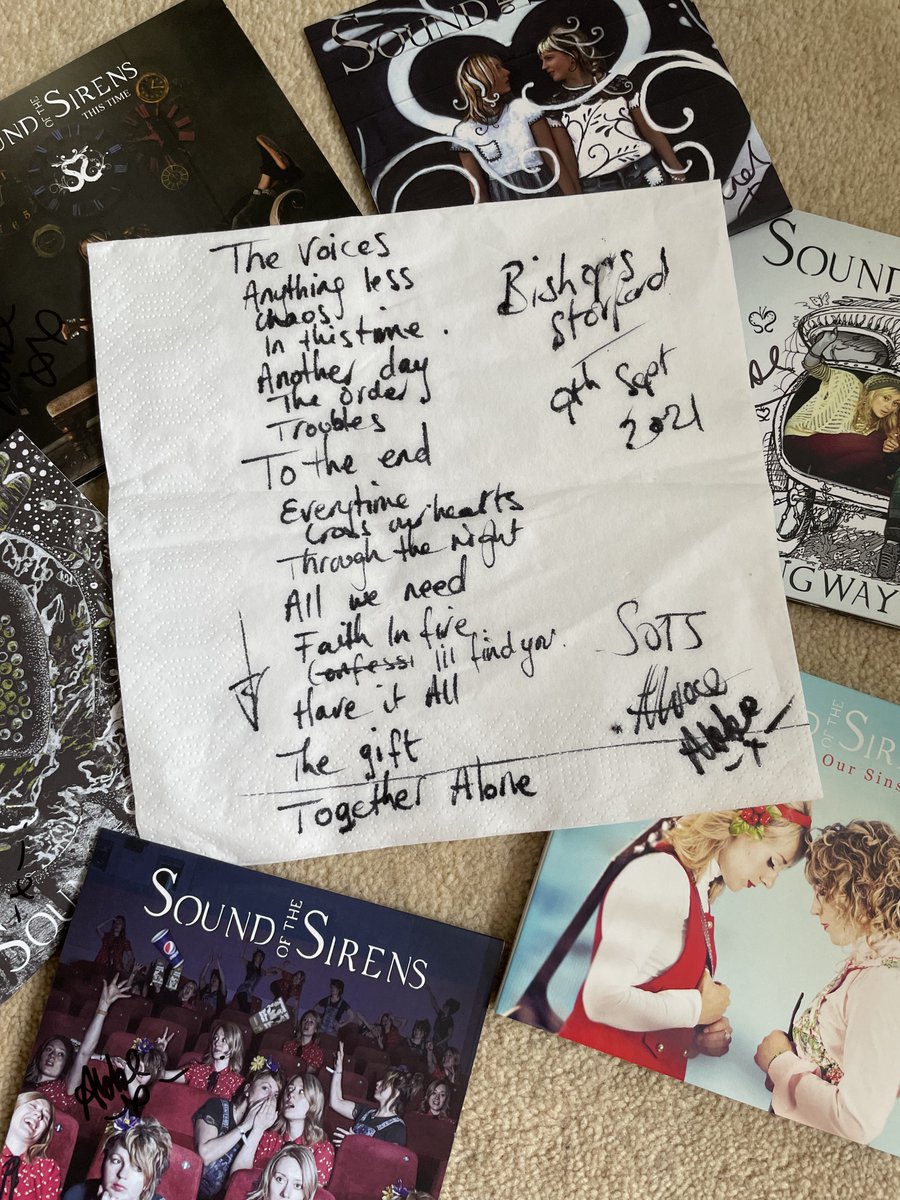 SOUND OF THE SIRENS
THIS TIME
SOUND
The Voices
Anything less
Chaos
In this time.
Another day
The Orders
Troubles
To the end
Everytime
Cross our hearts
Through the Night
All we need
Faith In fire
Confessi III find you.
Have it All
The gift
Together Alone
Bishops
Stortford
9th Sept
2021
SOTS
Abbe
x
SOUND
NGWAY
SOUND OF THE SIRENS
Our Sins
SOU
SOUND OF THE SIRENS
Abbe